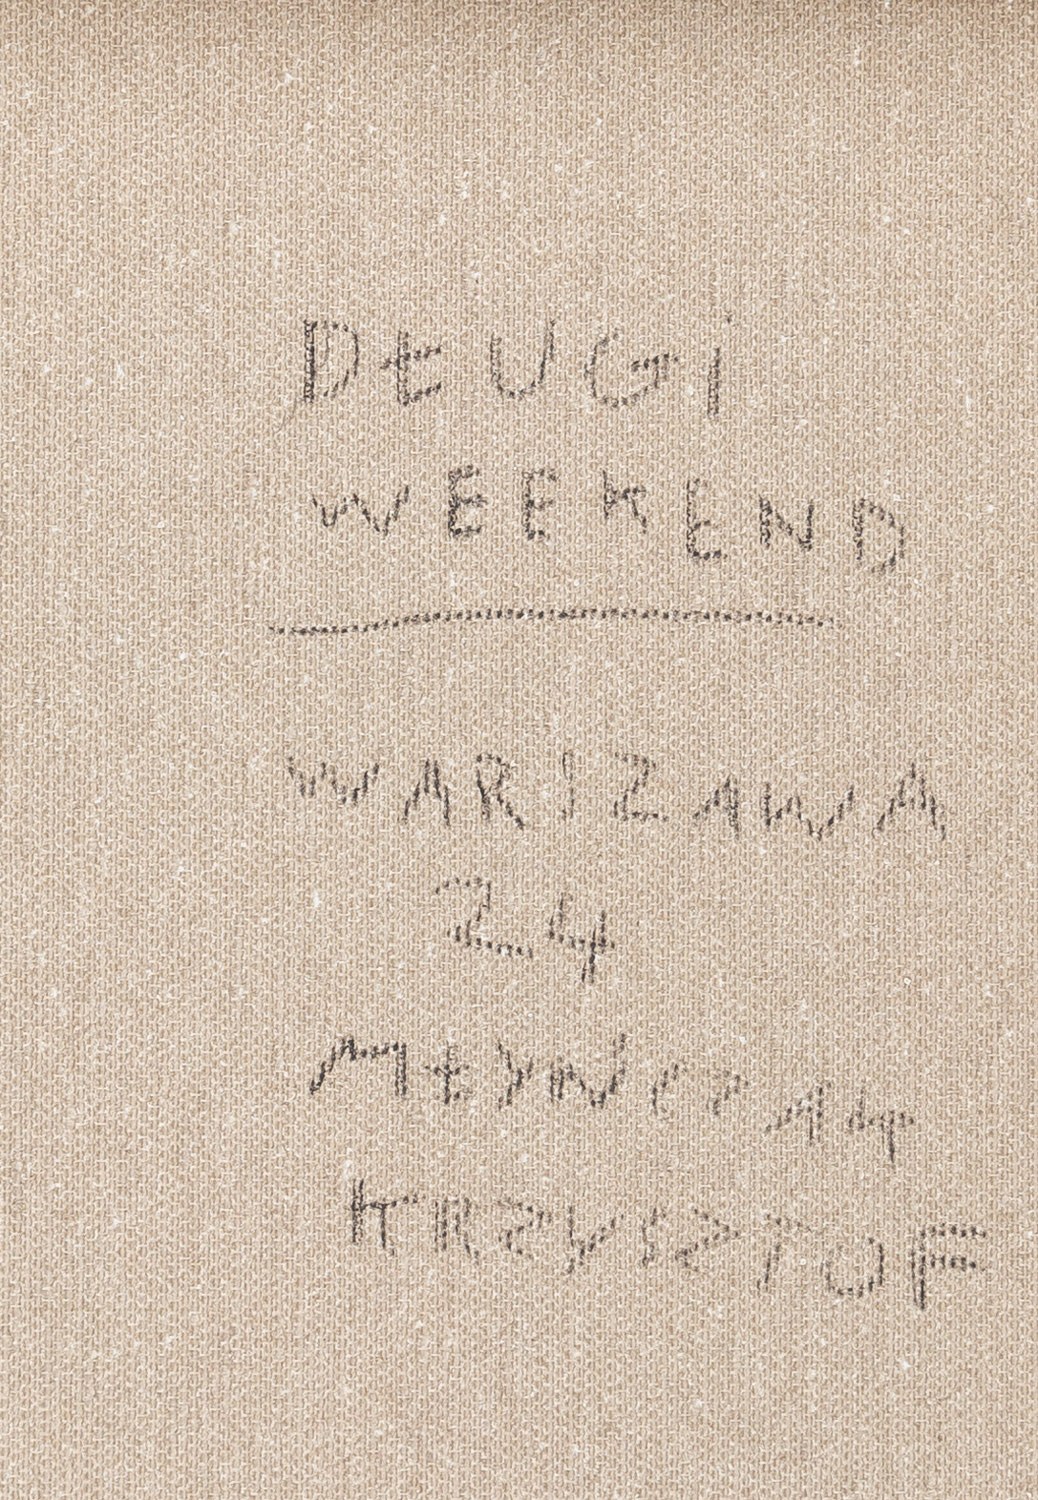 DŁUGI
WEEKEND
WARSZAWA
24
MŁYNCZAK
KRZYSZTOF